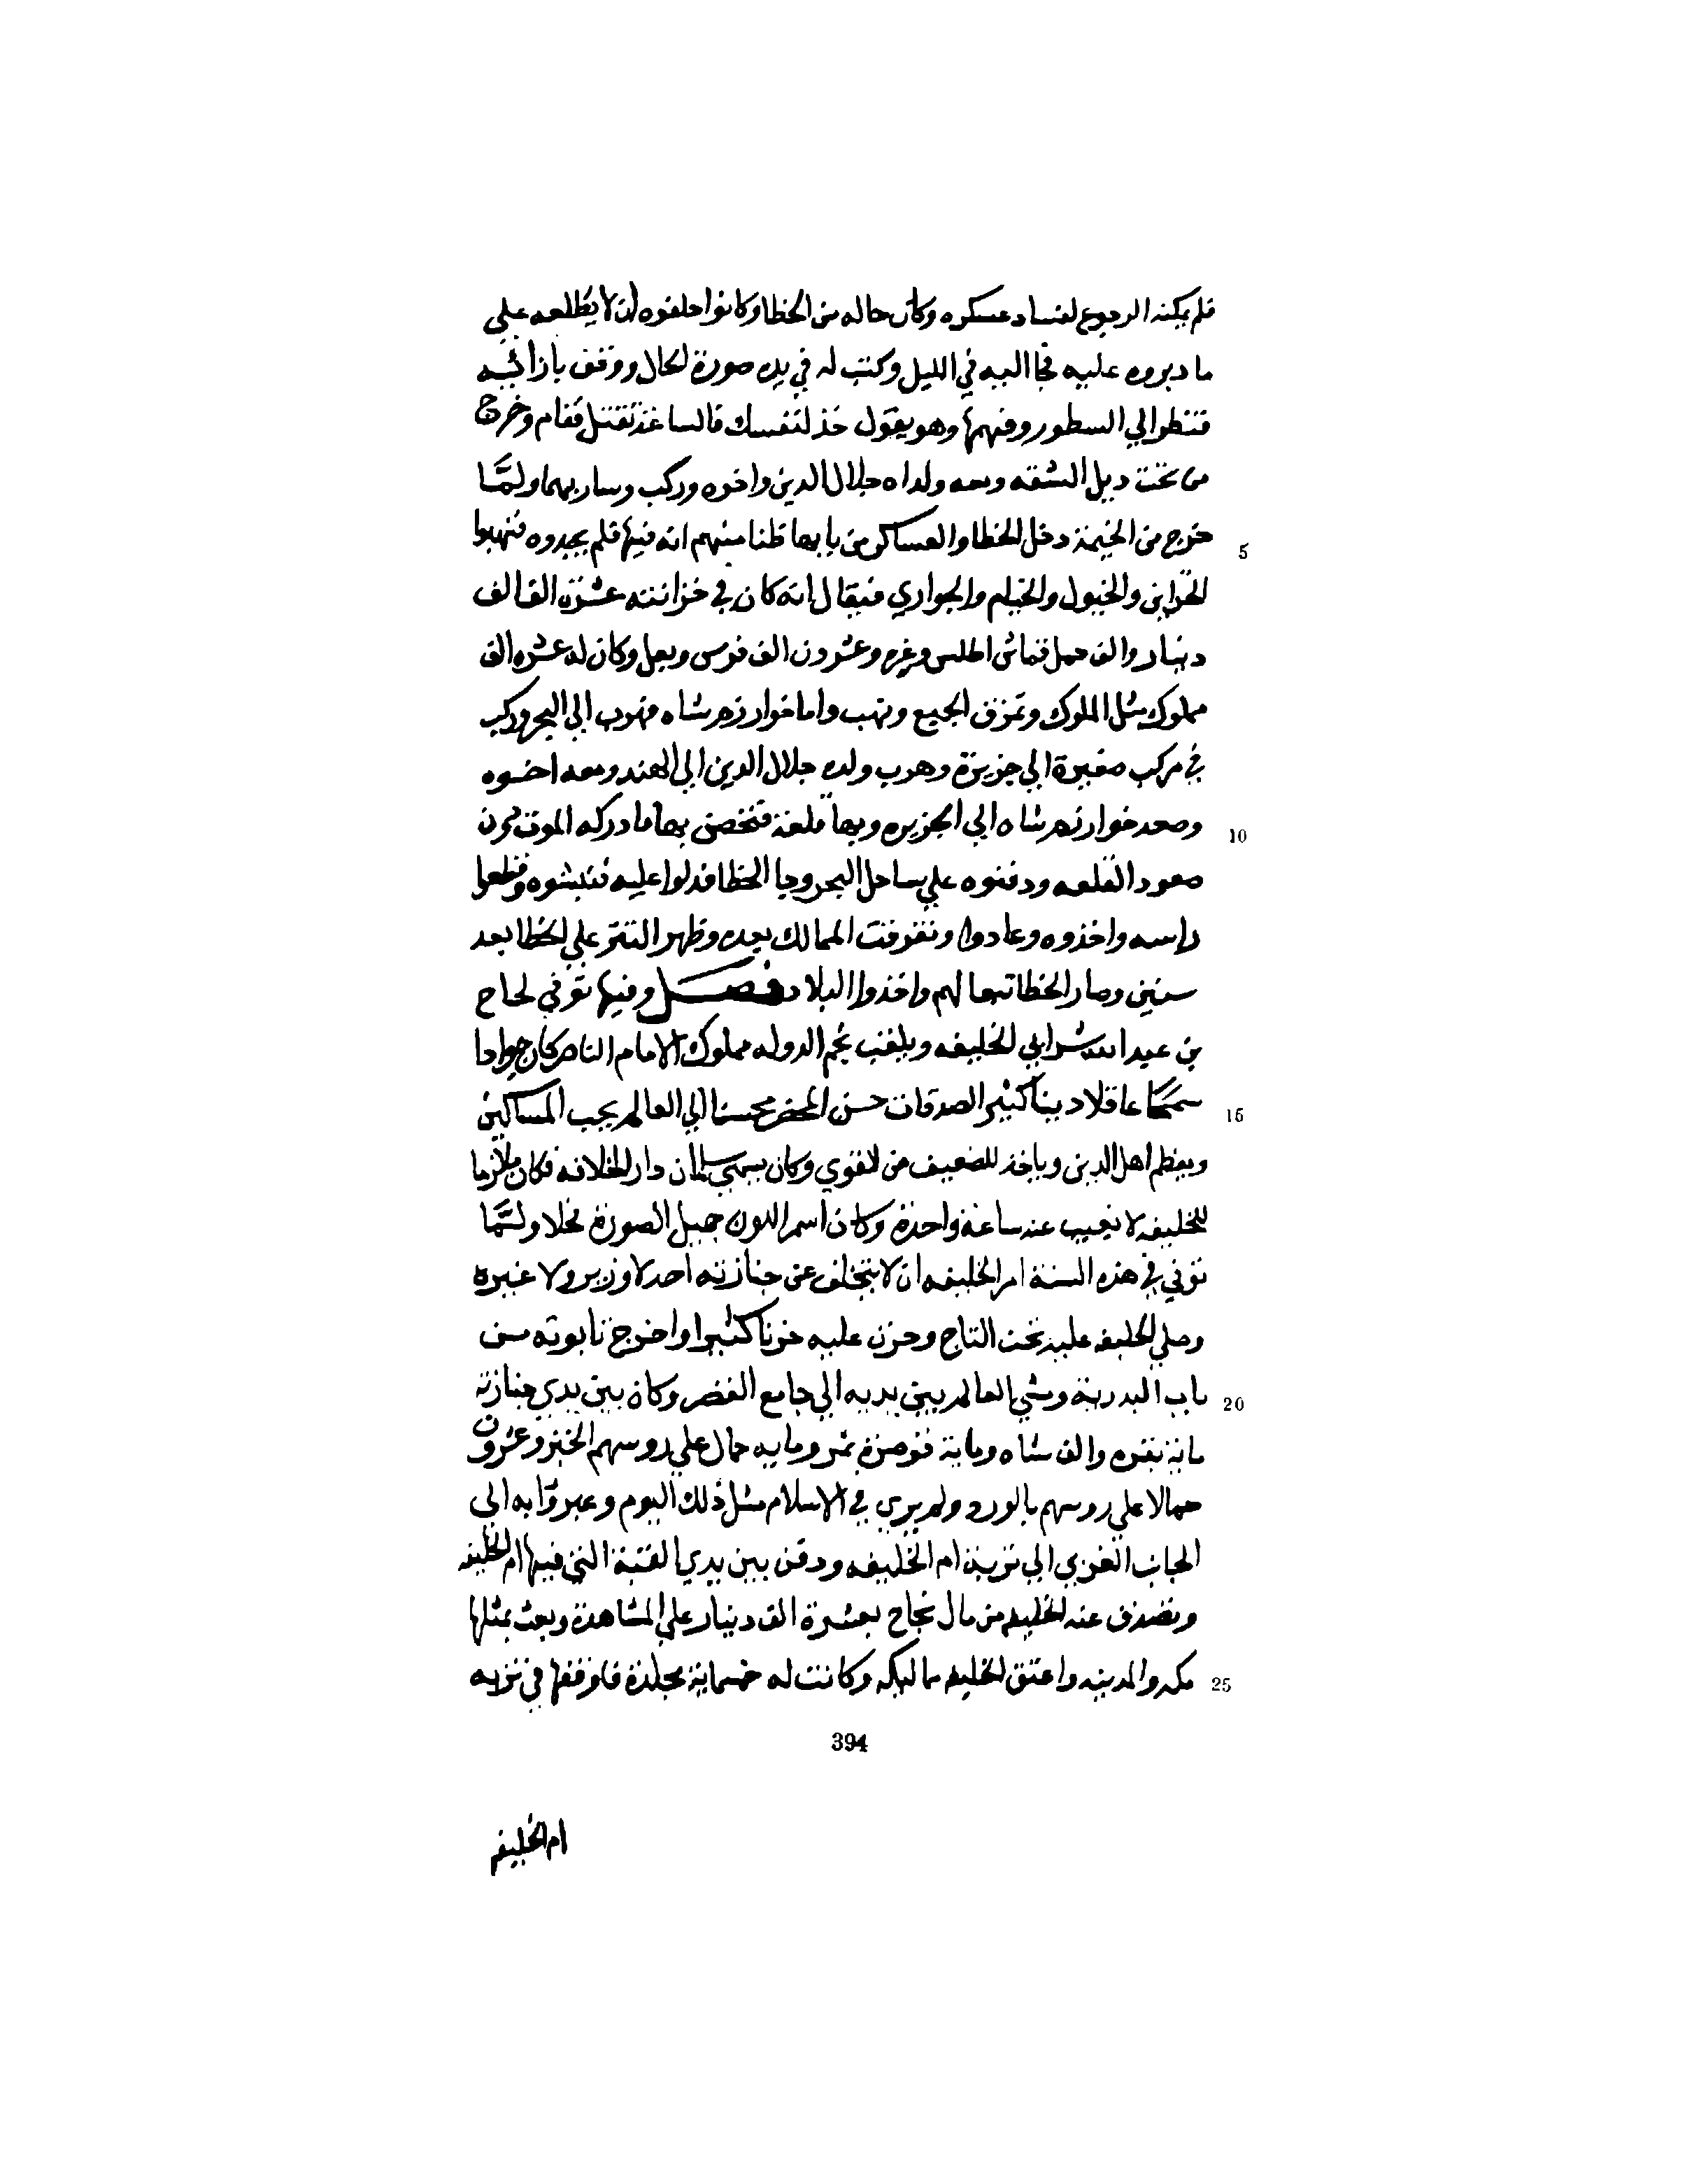 فلم يمكنه الرجوع لفساد عسكره وكان خاله من الخطا وكانوا حلفوه ان لا يطلعه علي
ما دبروه عليه فجا اليه في الليل وكتب له في يده صورة الحال ووقف بازائيه
فنظر الي السطور وفهمها وهو يقول خذ لنفسك فالساعة تقتل فقام وخرج
من تحت ديل الشقه ومعه ولداه جلال الدين واخوه وركب وسار بهما ولمّا
خرج من الخيمة دخل الخطا والعساكر من بابها ظنا منهم انه فيها فلم يجدوه فنهبوا
5
الخزاين والخيول والخيام والجواري فيقال انه كان في خزائنه عشرة الف الف
دينار والف حمل قماش اطلس وغيره وعشرون الف فرس وبغل وكان له عشره الف
مملوك مثل الملوك وتمزق الجميع ونهب واما خوارزم شاه فهرب الي البحر وركب
في مركب صغيرة الي جزيرة وهرب ولده جلال الدين الي الهند ومعه اخوه
وصعد خوارزم شاه الي الجزيره وبها قلعة فتحصن بها فادركه الموت دون
10
صعود القلعه ودفنوه علي ساحل البحر وجا الخطا فدلوا عليه فنبشوه وقطعوا
راسه واخذوه وعادوا وتفرقت الممالك بعده وظهر التتر علي الخطا بعد
سنين وصار الخطا تبعا لهم واخذوا البلاد فصل وفيها توفي نجاح
بن عبد الله شرابي الخليفه ويلقب نجم الدوله مملوك الامام الناصر كان جوادا
سمحًا عاقلا دينا كثير الصدقات حسن المحضر محسنا الي العالم يحب المساكين
15
ويعظم اهل الدين وياخذ للضعيف من القوي وكان يسمي سلمان دار الخلافة فكان ملازما
للخليفه لا يغيب عنه ساعة واحدة وكان اسمر اللون جميل الصورة فحلا ولمّا
توفي في هذه السنة امر الخليفه ان لا يتخلف عن جنازته احد لا وزير ولا غيره
وصلي الخليفه عليه تحت التاج وحزن عليه حزنا كثيرا واخرج تابوته من
باب البدرية ومشي العالم بين يديه الي جامع القصر وكان بين يدي جنازته
20
ماية بقره والف شاه وماية قوصرة تمر ومايه حمال علي روسهم الخبز وعشرون
حمالا علي روسهم بالورد ولم يري في الاسلام مثل ذلك اليوم وعبروا به الى
الجانب الغربي الي تربة ام الخليفه ودفن بين يدي القبة التي فيها ام الخليفه
وتصدق عنه الخليفه من مال نجاح بعشرة الف دينار علي المشاهدة وبعث بمثلها
مكه والمدينه واعتق الخليفه مماليكه وكانت له خمسماية مجلدة فاوقفها في تربه
25
394
ام الخليفه